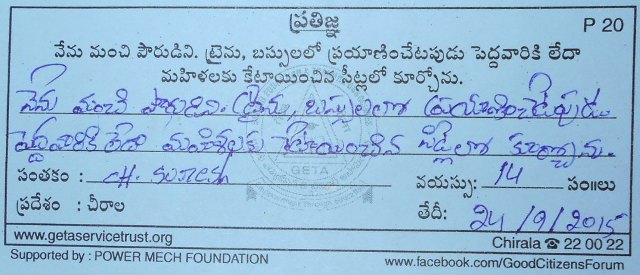 ప్రతిజ్ఞ
P 20
నేను మంచి పౌరుడిని. ట్రైను, బస్సులలో ప్రయాణించేటపుడు పెద్దవారికి లేదా
మహిళలకు కేటాయించిన సీట్లలో కూర్చోను.
నేను మంచి పౌరుడిని. ట్రైను, బస్సులలో ప్రయాణించేటపుడు
పెద్దవారికి లేదా మహిళలకు కేటాయించిన సీట్లలో కూర్చోను.
సంతకం : CH. SURESH వయస్సు: 14 సం॥లు
ప్రదేశం : చీరాల తేదీ: 24/9/2015
www.getaservicetrust.org Chirala ☎ 22 00 22
Supported by : POWER MECH FOUNDATION www.facebook.com/GoodCitizensForum
GETA